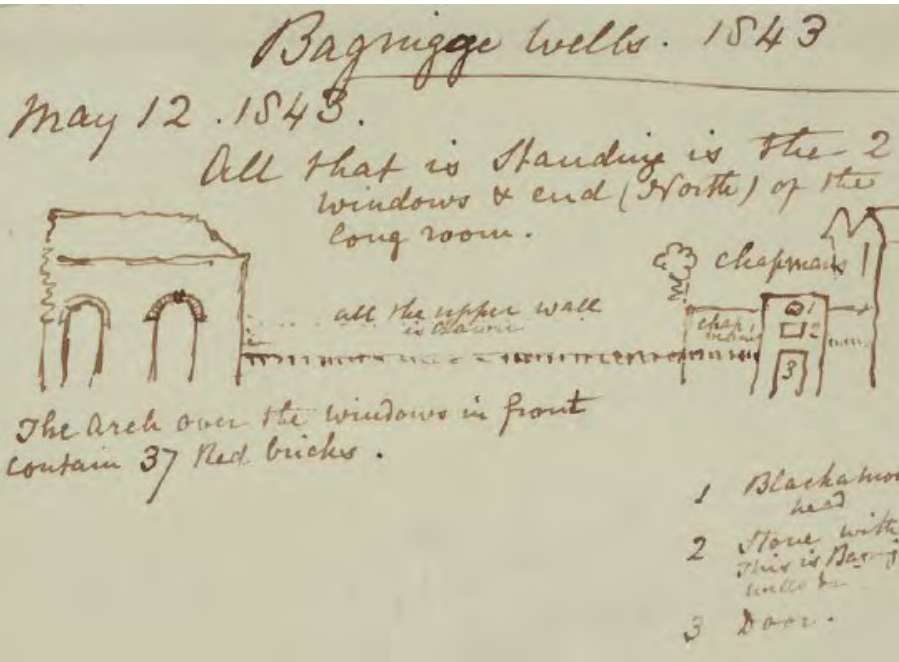 Bagnigge Wells. 1843
May 12. 1843.
All that is Standing is the 2
windows & end (North) of the
long room.
chapmans
all the upper wall
is down
1
2
3
The Arch over the windows in front
contain 37 Red bricks.
1 Blackamoo
head
2 Stone with
This is Bagnig
3 Door.